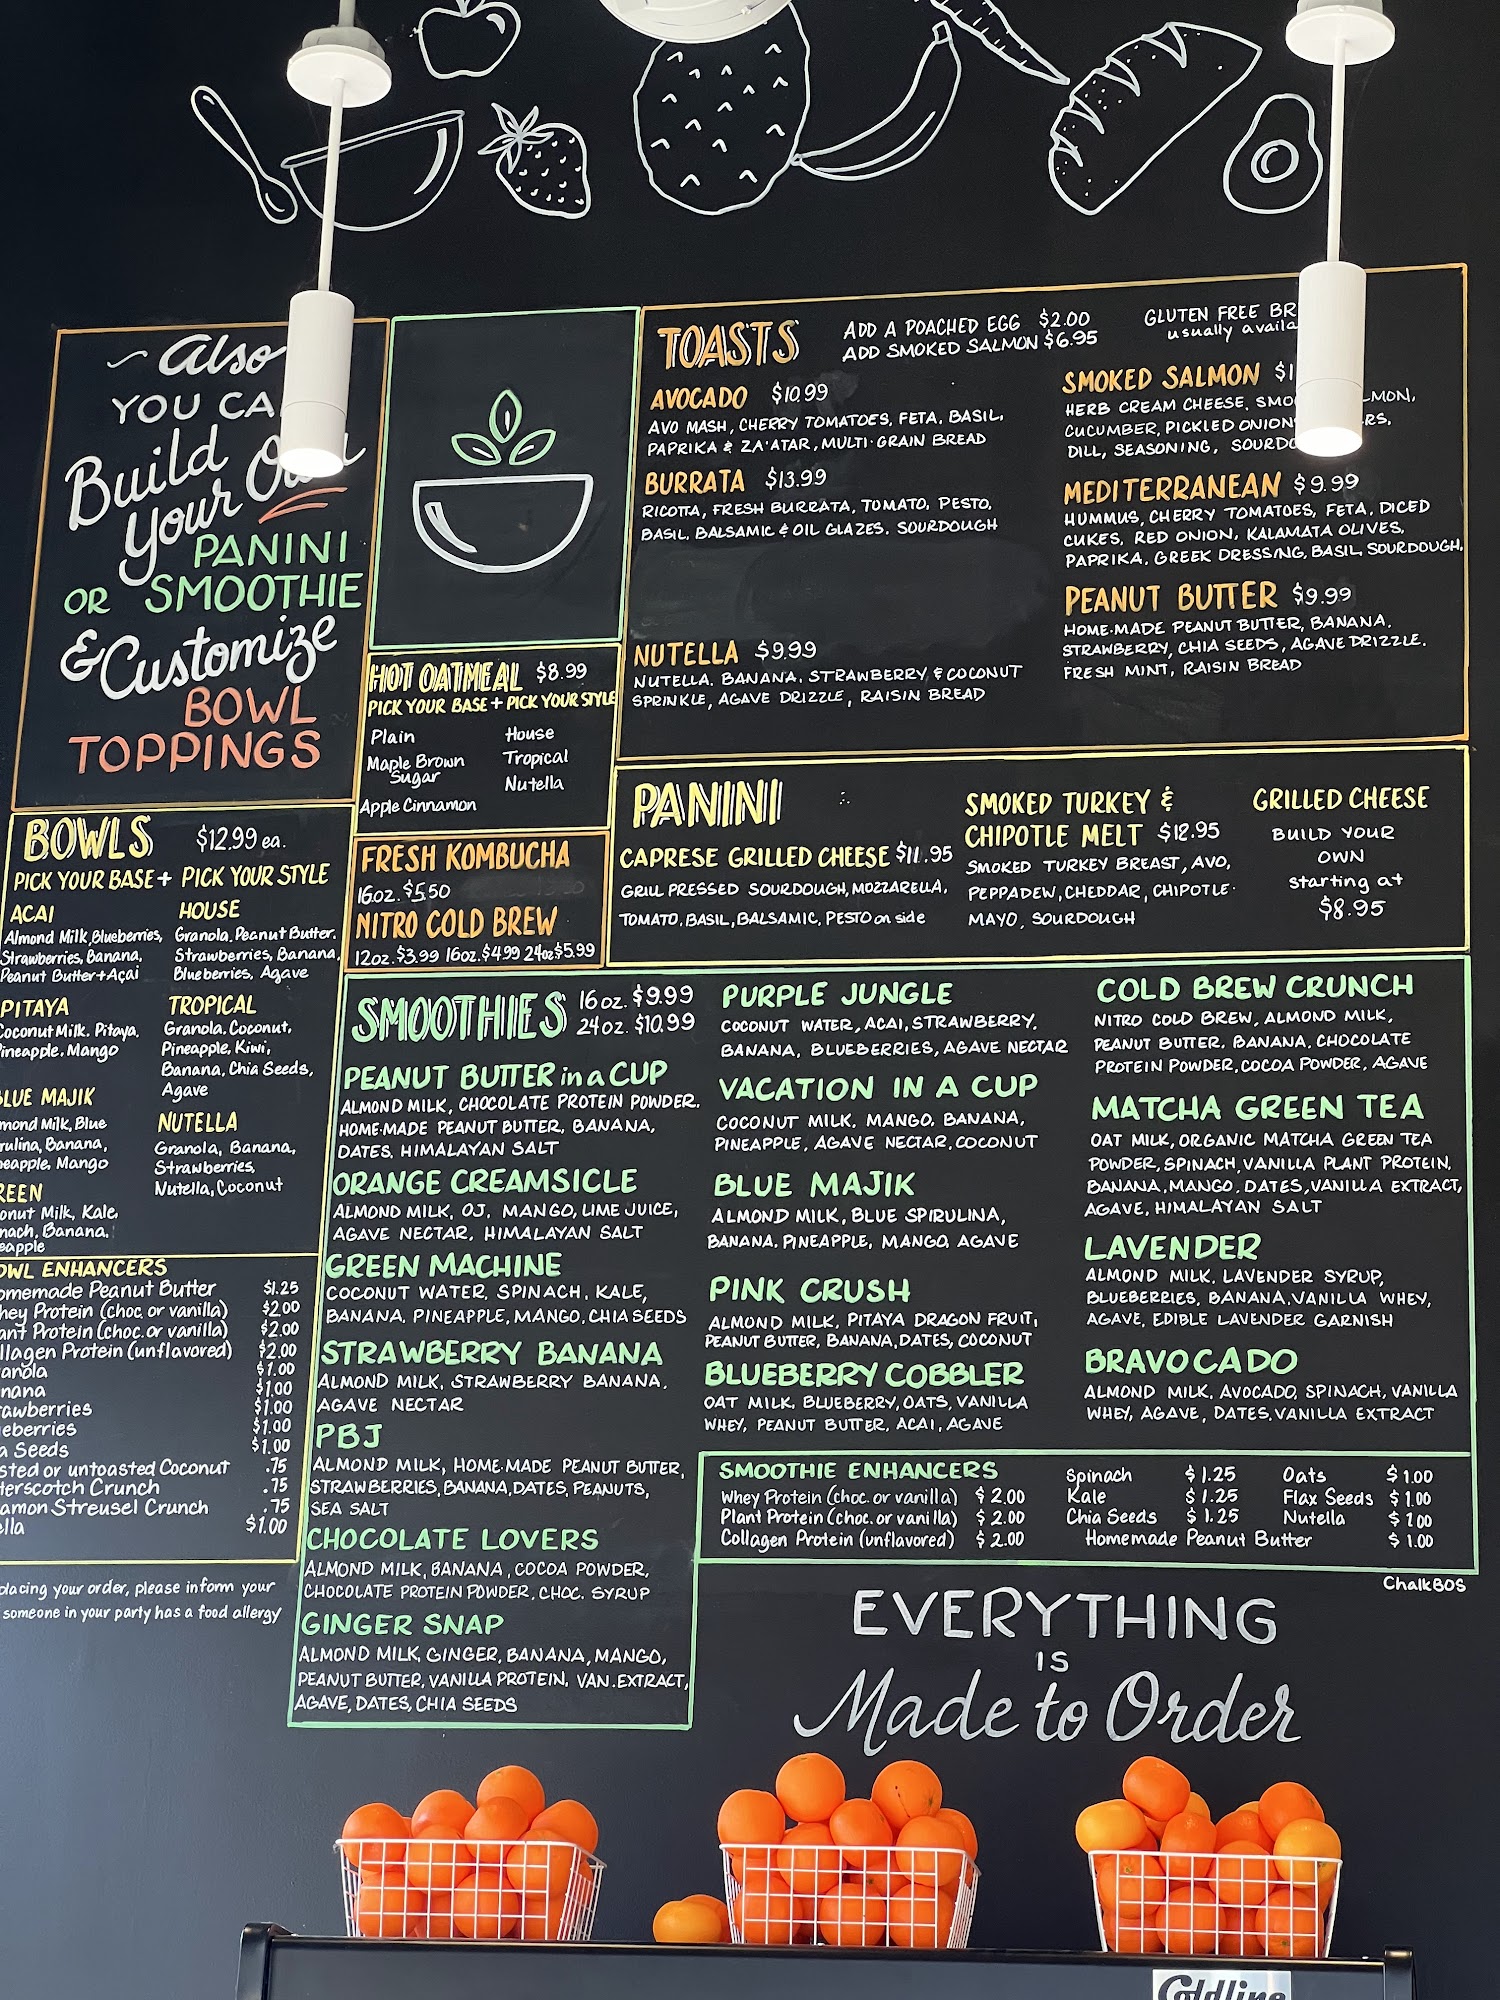 Also
YOU CA
Build
Your Own
PANINI
OR SMOOTHIE
& Customize
BOWL
TOPPINGS
BOWLS $12.99 ea.
PICK YOUR BASE + PICK YOUR STYLE
ACAI
Almond Milk, Blueberries,
Strawberries, Banana,
Peanut Butter + Açai
PITAYA
Coconut Milk, Pitaya,
Pineapple, Mango
BLUE MAJIK
mond Milk, Blue
rulina, Banana,
neapple, Mango
REEN
onut Milk, Kale,
nach, Banana,
eapple
HOUSE
Granola, Peanut Butter,
Strawberries, Banana,
Blueberries, Agave
TROPICAL
Granola, Coconut,
Pineapple, Kiwi,
Banana, Chia Seeds,
Agave
NUTELLA
Granola, Banana,
Strawberries,
Nutella, Coconut
OWL ENHANCERS
omemade Peanut Butter $1.25
hey Protein (choc. or vanilla) $2.00
ant Protein (choc. or vanilla) $2.00
llagen Protein (unflavored) $2.00
anola $1.00
nana $1.00
rawberries $1.00
eberries $1.00
a Seeds $1.00
sted or untoasted Coconut .75
terscotch Crunch .75
amon Streusel Crunch .75
ella $1.00
placing your order, please inform your
someone in your party has a food allergy
HOT OATMEAL $8.99
PICK YOUR BASE + PICK YOUR STYLE
Plain
Maple Brown
Sugar
Apple Cinnamon
House
Tropical
Nutella
FRESH KOMBUCHA
16oz. $5.50
NITRO COLD BREW
12oz. $3.99 16oz. $4.99 24oz $5.99
TOASTS
ADD A POACHED EGG $2.00
ADD SMOKED SALMON $6.95
GLUTEN FREE BR
usually availa
AVOCADO $10.99
AVO MASH, CHERRY TOMATOES, FETA, BASIL,
PAPRIKA & ZA'ATAR, MULTI-GRAIN BREAD
BURRATA $13.99
RICOTTA, FRESH BURRATA, TOMATO, PESTO,
BASIL, BALSAMIC & OIL GLAZES, SOURDOUGH
NUTELLA $9.99
NUTELLA, BANANA, STRAWBERRY & COCONUT
SPRINKLE, AGAVE DRIZZLE, RAISIN BREAD
SMOKED SALMON $1
HERB CREAM CHEESE, SMO LMON,
CUCUMBER, PICKLED ONION RS,
DILL, SEASONING, SOURDO
MEDITERRANEAN $9.99
HUMMUS, CHERRY TOMATOES, FETA, DICED
CUKES, RED ONION, KALAMATA OLIVES,
PAPRIKA, GREEK DRESSING, BASIL, SOURDOUGH,
PEANUT BUTTER $9.99
HOME-MADE PEANUT BUTTER, BANANA,
STRAWBERRY, CHIA SEEDS, AGAVE DRIZZLE.
FRESH MINT, RAISIN BREAD
PANINI
CAPRESE GRILLED CHEESE $11.95
GRILL PRESSED SOURDOUGH, MOZZARELLA,
TOMATO, BASIL, BALSAMIC, PESTO on side
SMOKED TURKEY &
CHIPOTLE MELT $12.95
SMOKED TURKEY BREAST, AVO,
PEPPADEW, CHEDDAR, CHIPOTLE-
MAYO, SOURDOUGH
GRILLED CHEESE
BUILD YOUR
OWN
starting at
$8.95
SMOOTHIES 16 oz. $9.99
24 oz. $10.99
PEANUT BUTTER in a CUP
ALMOND MILK, CHOCOLATE PROTEIN POWDER,
HOME-MADE PEANUT BUTTER, BANANA,
DATES, HIMALAYAN SALT
ORANGE CREAMSICLE
ALMOND MILK, OJ, MANGO, LIME JUICE,
AGAVE NECTAR, HIMALAYAN SALT
GREEN MACHINE
COCONUT WATER, SPINACH, KALE,
BANANA, PINEAPPLE, MANGO, CHIA SEEDS
STRAWBERRY BANANA
ALMOND MILK, STRAWBERRY BANANA,
AGAVE NECTAR
PBJ
ALMOND MILK, HOME-MADE PEANUT BUTTER,
STRAWBERRIES, BANANA, DATES, PEANUTS,
SEA SALT
CHOCOLATE LOVERS
ALMOND MILK, BANANA, COCOA POWDER,
CHOCOLATE PROTEIN POWDER, CHOC. SYRUP
GINGER SNAP
ALMOND MILK, GINGER, BANANA, MANGO,
PEANUT BUTTER, VANILLA PROTEIN, VAN. EXTRACT,
AGAVE, DATES, CHIA SEEDS
PURPLE JUNGLE
COCONUT WATER, ACAI, STRAWBERRY,
BANANA, BLUEBERRIES, AGAVE NECTAR
VACATION IN A CUP
COCONUT MILK, MANGO, BANANA,
PINEAPPLE, AGAVE NECTAR, COCONUT
BLUE MAJIK
ALMOND MILK, BLUE SPIRULINA,
BANANA, PINEAPPLE, MANGO, AGAVE
PINK CRUSH
ALMOND MILK, PITAYA DRAGON FRUIT,
PEANUT BUTTER, BANANA, DATES, COCONUT
BLUEBERRY COBBLER
OAT MILK, BLUEBERRY, OATS, VANILLA
WHEY, PEANUT BUTTER, ACAI, AGAVE
COLD BREW CRUNCH
NITRO COLD BREW, ALMOND MILK,
PEANUT BUTTER, BANANA, CHOCOLATE
PROTEIN POWDER, COCOA POWDER, AGAVE
MATCHA GREEN TEA
OAT MILK, ORGANIC MATCHA GREEN TEA
POWDER, SPINACH, VANILLA PLANT PROTEIN,
BANANA, MANGO, DATES, VANILLA EXTRACT,
AGAVE, HIMALAYAN SALT
LAVENDER
ALMOND MILK, LAVENDER SYRUP,
BLUEBERRIES, BANANA, VANILLA WHEY,
AGAVE, EDIBLE LAVENDER GARNISH
BRAVOCADO
ALMOND MILK, AVOCADO, SPINACH, VANILLA
WHEY, AGAVE, DATES, VANILLA EXTRACT
SMOOTHIE ENHANCERS
Whey Protein (choc. or vanilla) $2.00
Plant Protein (choc. or vanilla) $2.00
Collagen Protein (unflavored) $2.00
Spinach $1.25 Oats $1.00
Kale $1.25 Flax Seeds $1.00
Chia Seeds $1.25 Nutella $1.00
Homemade Peanut Butter $1.00
ChalkBOS
EVERYTHING
IS
Made to Order
Coldline